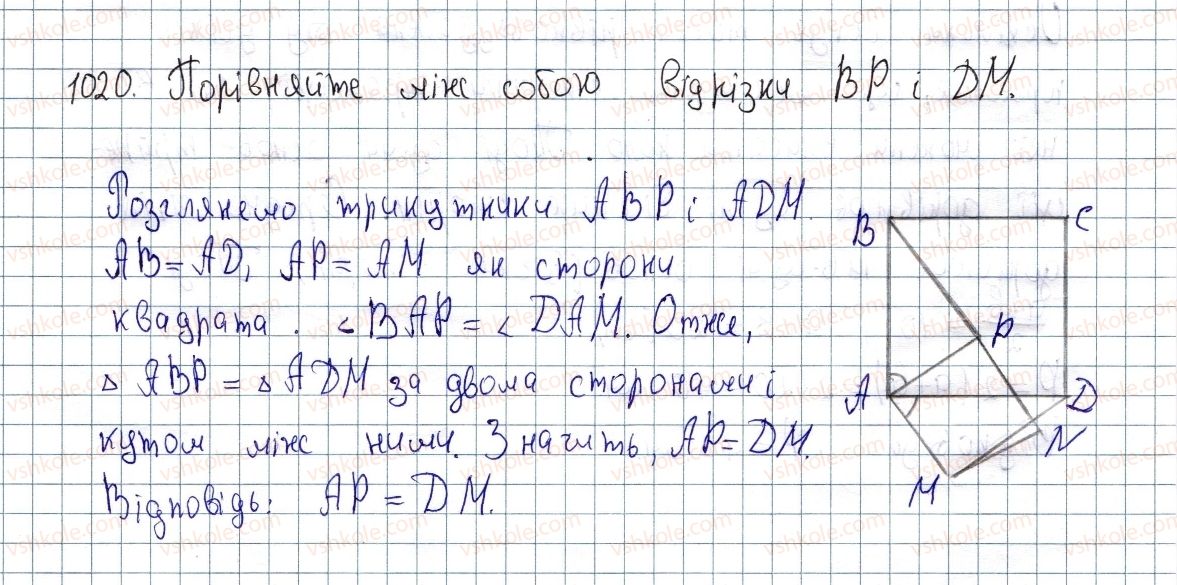 1020. Порівняйте між собою відрізки BP і DM.
Розглянемо трикутники ABP і ADM
AB = AD, AP = AM як сторони
квадрата. ∠BAP = ∠DAM. Отже,
△ ABP = △ ADM за двома сторонами і
кутом між ними. Значить, AP = DM.
Відповідь: AP = DM.
B C
P
A D
N
M
vshkole.com